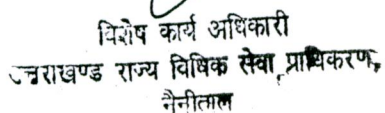 विशेष कार्य अधिकारी
उत्तराखण्ड राज्य विधिक सेवा प्राधिकरण,
नैनीताल